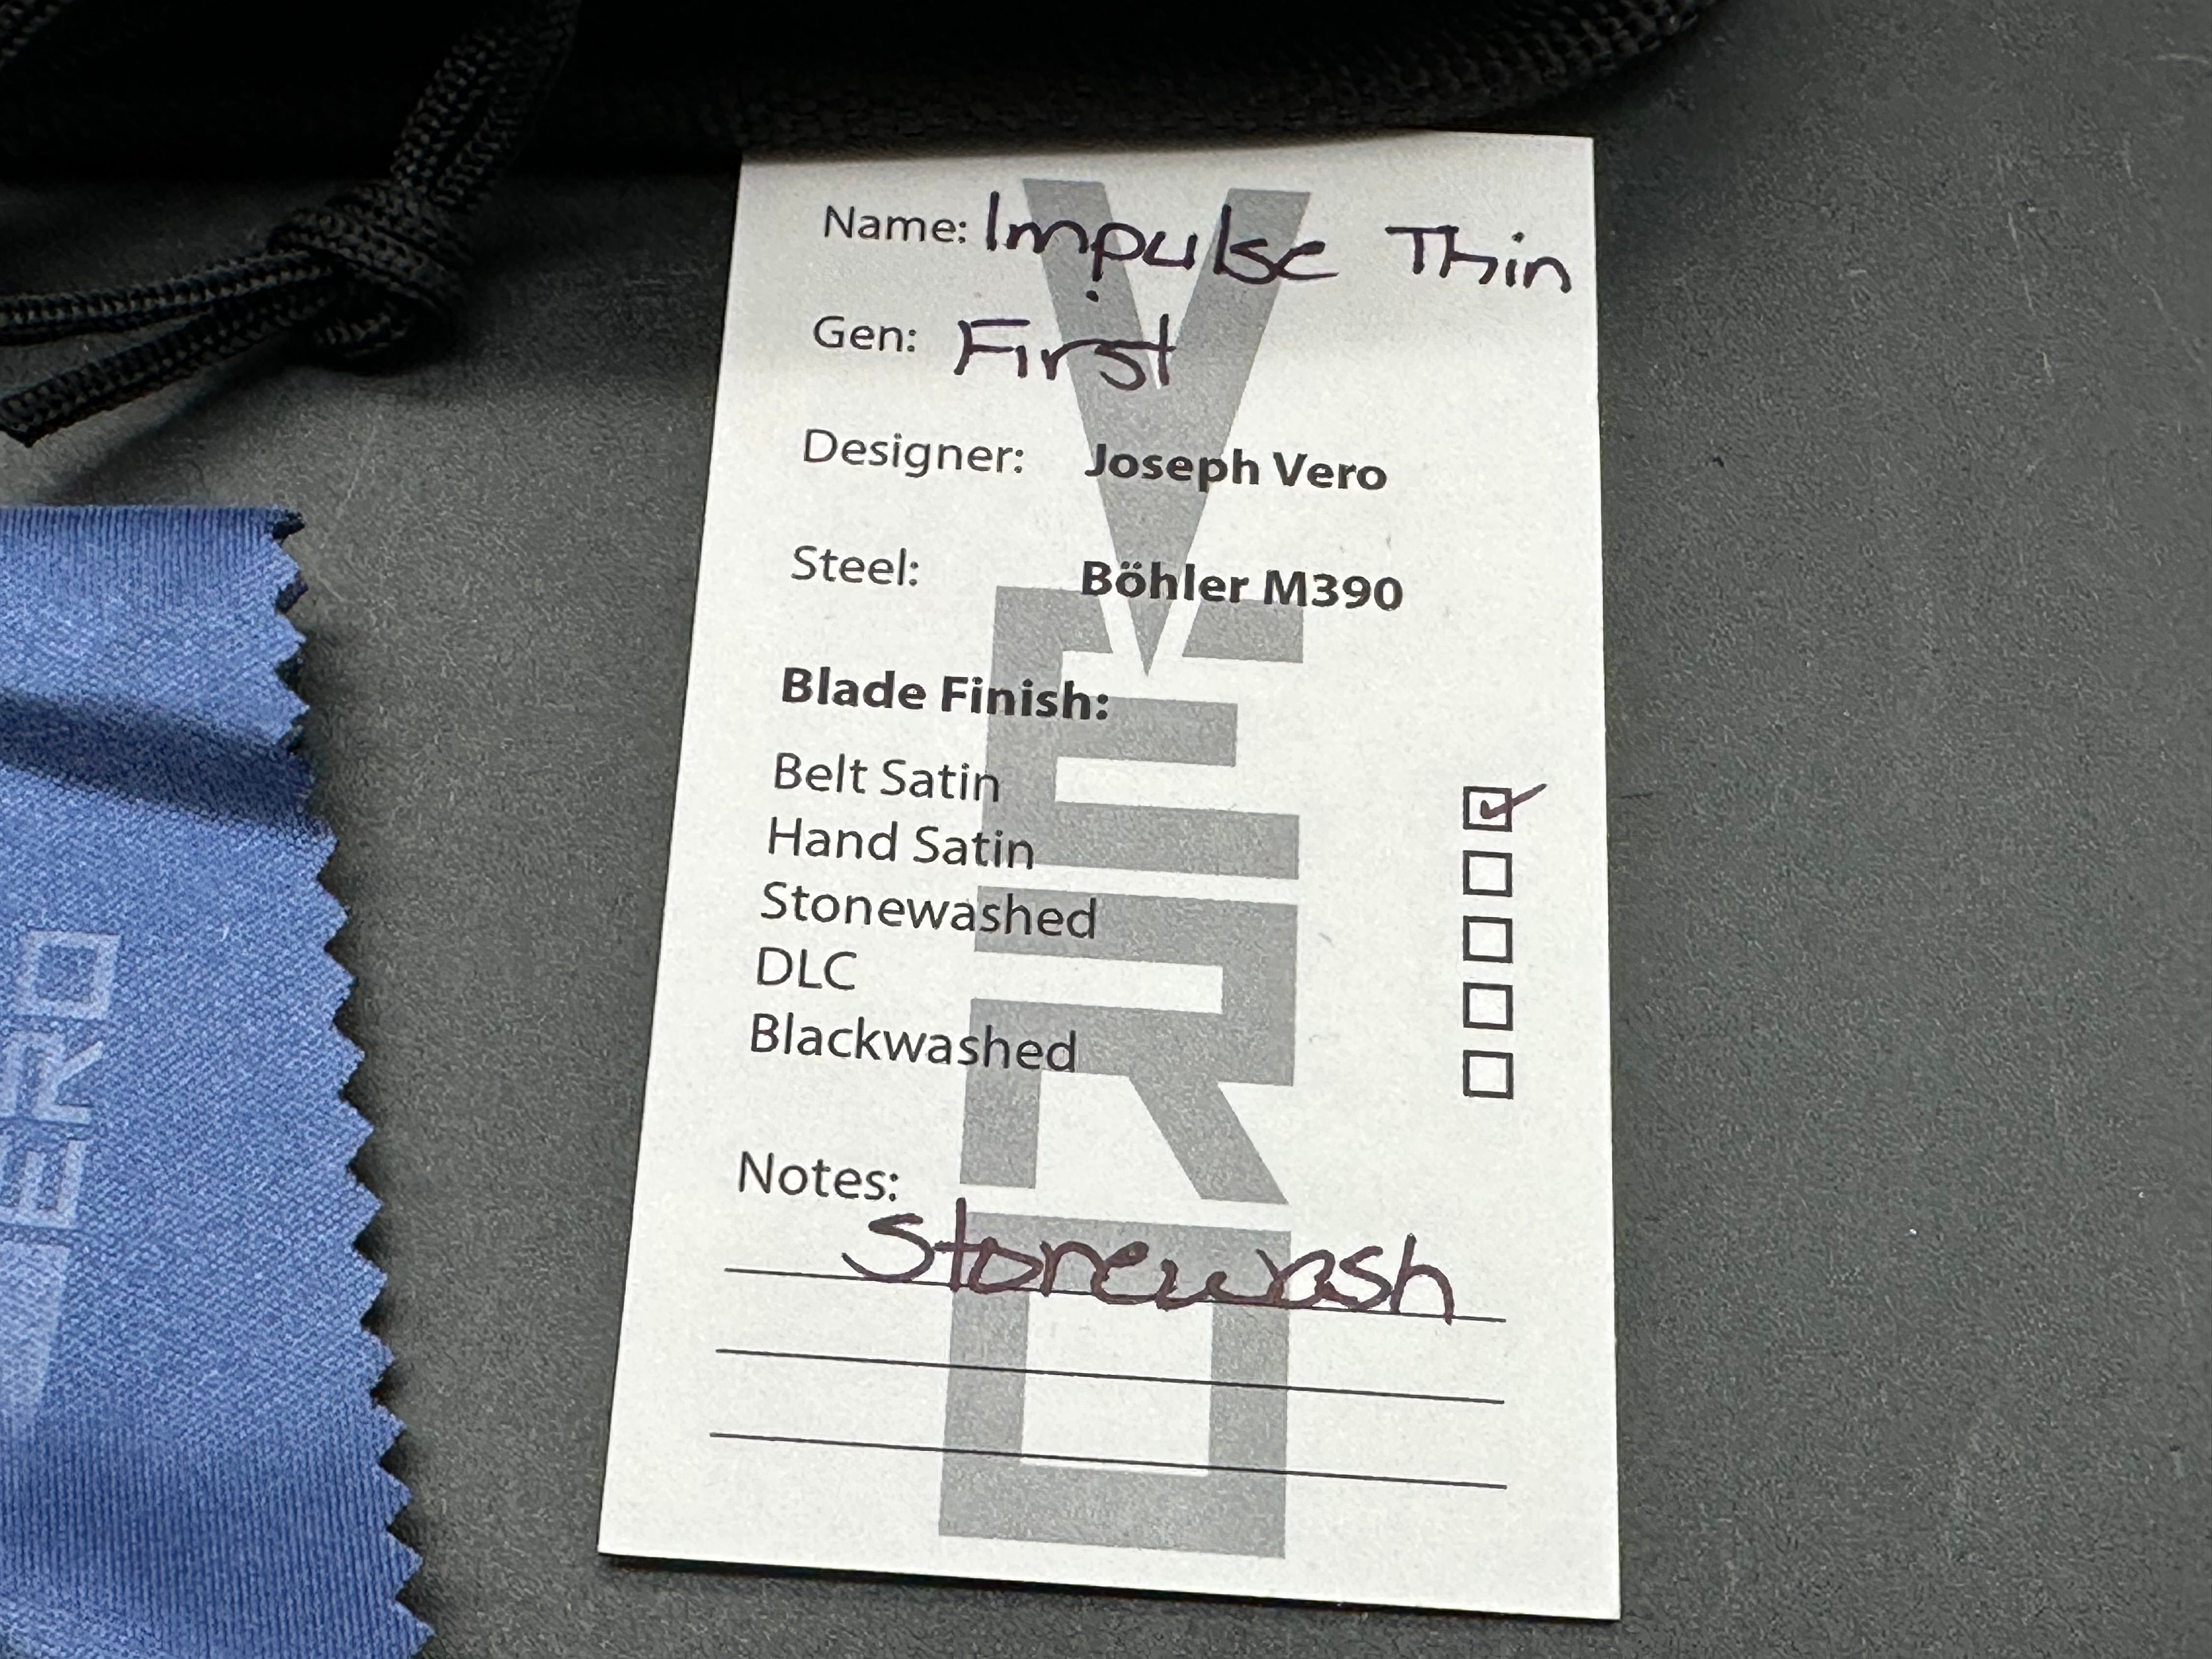 Name: Impulse Thin
Gen: First
Designer: Joseph Vero
Steel: Böhler M390
Blade Finish:
Belt Satin ☑
Hand Satin ☐
Stonewashed ☐
DLC ☐
Blackwashed ☐
Notes:
Stonewash
VERO
ERO